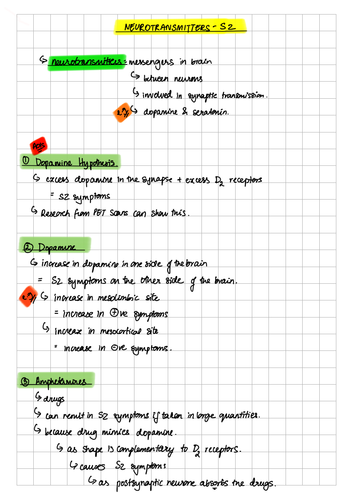 NEUROTRANSMITTERS - SZ
↳ Neurotransmitters = messengers in brain
↳ between neurons
↳ involved in synaptic transmission.
e.g. dopamine & seratonin.
① Dopamine Hypothesis
↳ excess dopamine in the synapse + excess D₂ receptors
= SZ symptoms
↳ Research from PET Scans can show this.
② Dopamine
↳ increase in dopamine in one side of the brain
= SZ symptoms on the other side of the brain.
e.g. ↳ Increase in mesolimbic site
= increase in ⊕ve symptoms
↳ Increase in mesocortical site
= increase in ⊖ve symptoms.
③ Amphetamines
↳ drugs
↳ can result in SZ symptoms if taken in large quantities.
↳ because drug mimics dopamine.
↳ as shape is complementary to D₂ receptors.
↳ causes SZ symptoms
↳ as postsynaptic neurone absorbs the drugs.